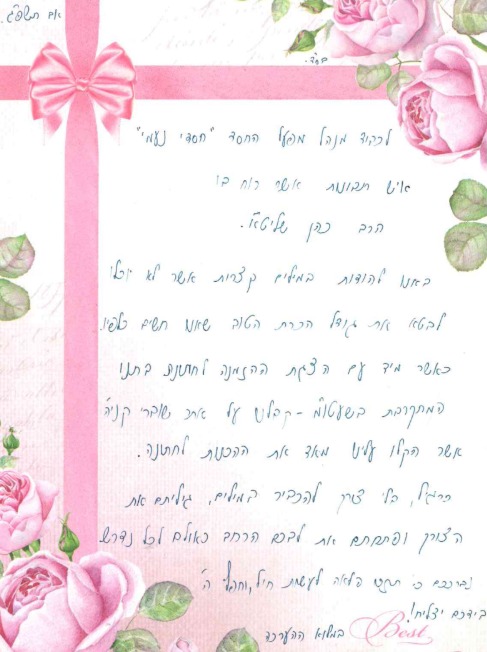 אב תשפ"ג.
בס"ד.
לכבוד מנהל מפעל החסד "חסדי נעמי"
איש תבונות אשר רוח בו
הרב כהן שליט"א.
באנו להודות במילים קצרות אשר לא יוכלו
לבטא את גודל הכרת הטוב שאנו חשים כלפיו.
כאשר מיד עם הצגת ההזמנה לחתונת בתנו
המתקרבת בשעטו"מ - קבלנו על אתר שוברי קניה
אשר הקלו עלינו מאד את ההכנות לחתונה.
כרגיל, בלי צורך להכביר במילים, גיליתם את
הצורך ופתחתם את לבכם הרחב כאולם לכל נדרש.
נברככם כי תוסיפו לעשות חיל, וחפץ ה'
בידכם יצליח!
במלוא ההערכה
Best